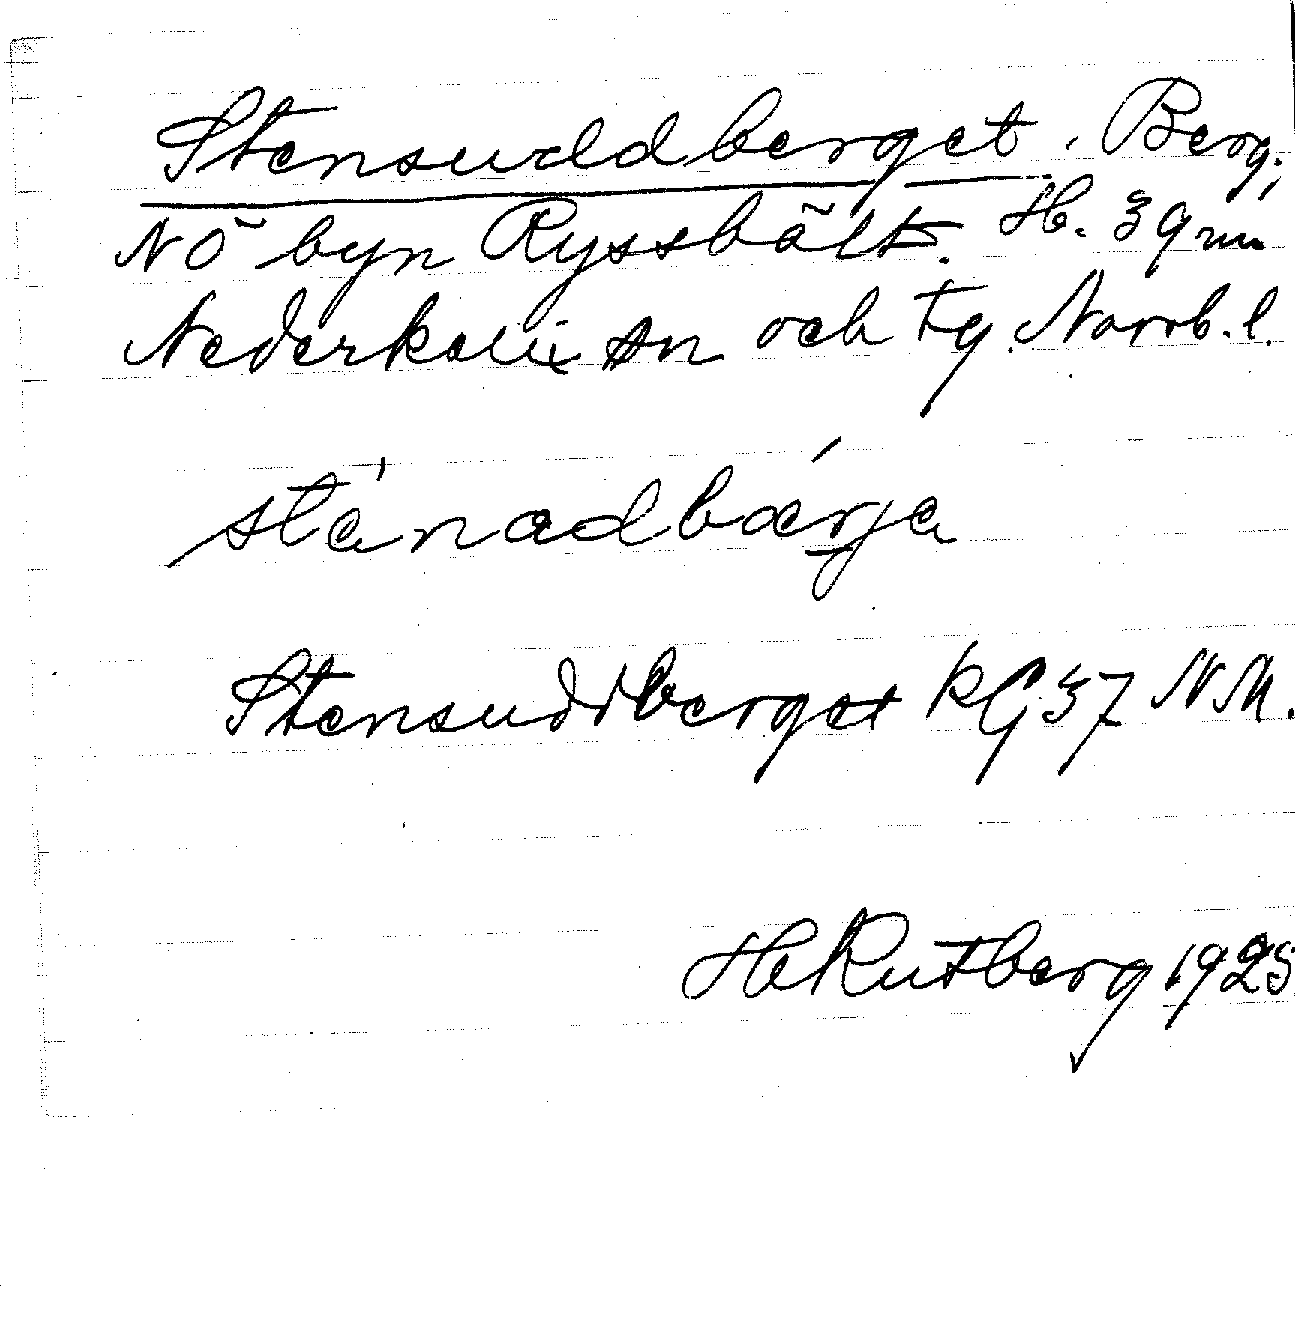 Stensuddberget. Berg;
NÖ byn Ryssbält. H. 39 m
Nederkalix sn och tg. Norrb. l.
stánadbárja
Stensuddberget KG 37 NM.
H Rutberg 1925